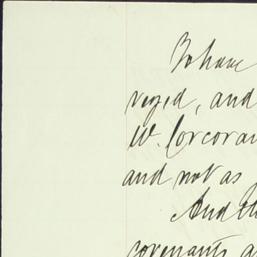 To have
veyed, and
W. Corcoran
and not as
And th
covenants a